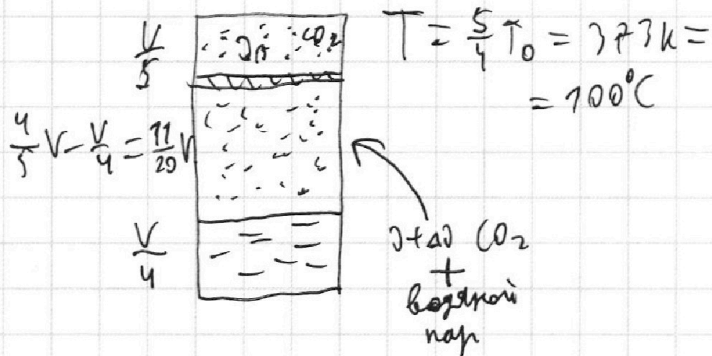 V/5
CO₂
T = 5/4 T₀ = 373к =
= 100°C
4/5 V - V/4 = 11/20 V
V/4
ϑ+Δϑ CO₂
+
водяной
пар